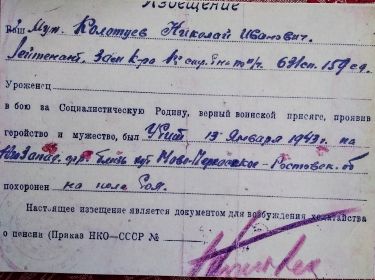 Извещение
Ваш Муж. Колотуев Николай Иванович.
Лейтенант. Зам к-ра 691 сп. 159 сд.
Уроженец
в бою за Социалистическую Родину, верный воинской присяге, проявив
геройство и мужество, был Убит 19 Января 1943 г. на
близь Ново-Черкасское-Ростовск. об
похоронен на поле боя.
Настоящее извещение является документом для возбуждения ходатайства
о пенсии (Приказ НКО—СССР №